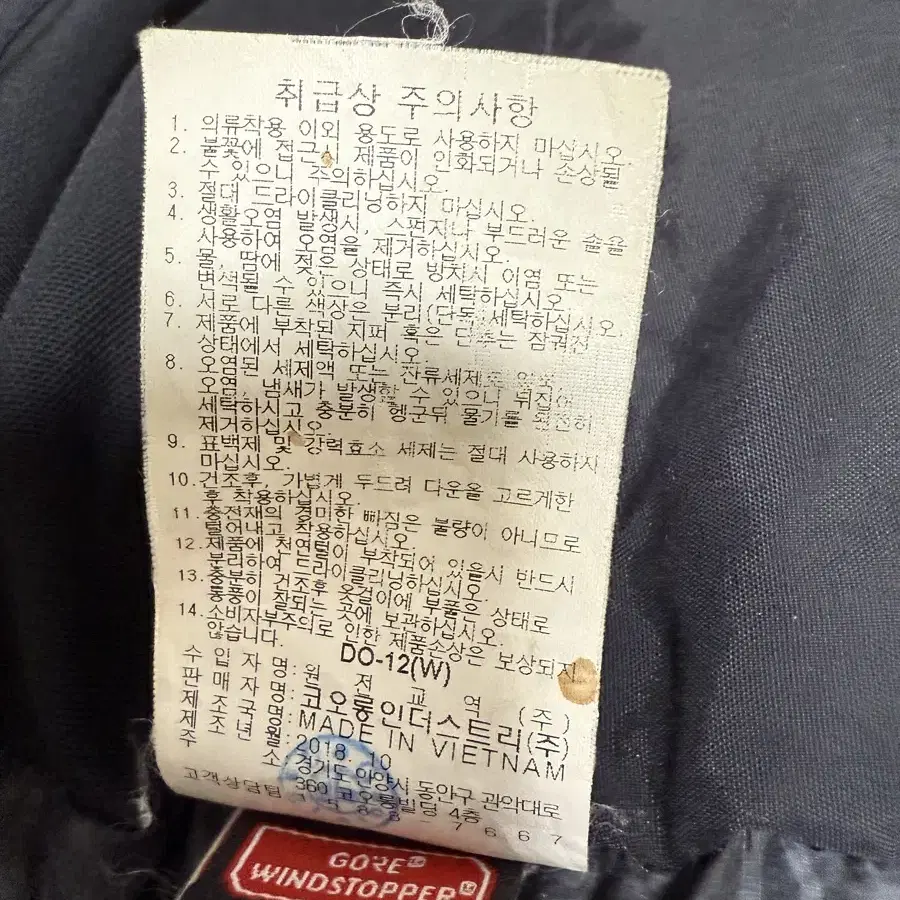 취급상 주의사항
1. 의류착용 이외 용도로 사용하지 마십시오.
2. 불꽃에 접근시 제품이 인화되거나 손상될
수 있으니 주의하십시오.
3. 절대 드라이클리닝하지 마십시오.
4. 생활오염 발생시, 스펀지나 부드러운 솔을
사용하여 오염을 제거하십시오.
5. 물,땀에 젖은 상태로 방치시 이염 또는
변색될 수 있으니 즉시 세탁하십시오.
6. 서로 다른 색상은 분리(단독)세탁하십시오.
7. 제품에 부착된 지퍼 혹은 단추는 잠궈진
상태에서 세탁하십시오.
8. 오염된 세제액 또는 잔류세제로
오염,냄새가 발생할 수 있으니 뒤집어
세탁하시고 충분히 헹군뒤 물기를 완전히
제거하십시오.
9. 표백제 및 강력효소 세제는 절대 사용하지
마십시오.
10.건조후, 가볍게 두드려 다운을 고르게한
후 착용하십시오.
11.충전재의 경미한 빠짐은 불량이 아니므로
털어내고 착용하십시오.
12.제품에 천연털이 부착되어 있을시 반드시
분리하여 드라이클리닝하십시오.
13.충분히 건조후 옷걸이에 부풀은 상태로
통풍이 잘되는 곳에 보관하십시오.
14.소비자부주의로 인한 제품손상은 보상되지
않습니다.
DO-12(W)
수입자명:원전교역(주)
판매자명:코오롱인더스트리(주)
제조국명:MADE IN VIETNAM
제조년월:2018.10
주소:경기도 안양시 동안구 관악대로
360 코오롱빌딩 4층
고객상담팀 1588-7667
GORE
WINDSTOPPER